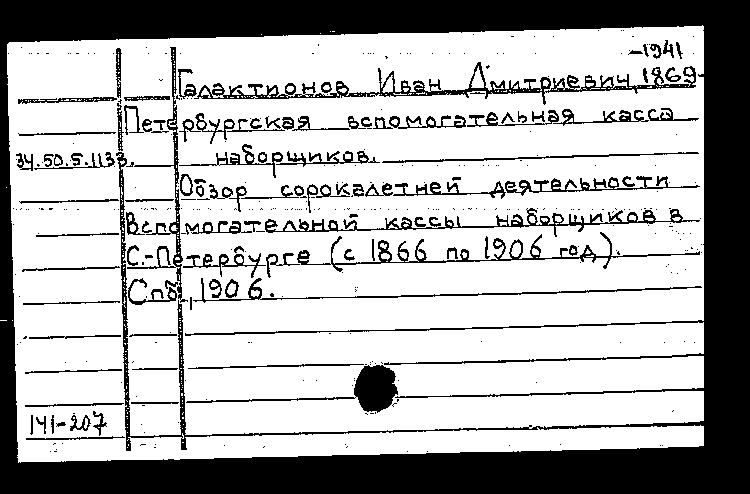 -1941
Галактионов Иван Дмитриевич, 1869-
Петербургская вспомогательная касса
34.50.5.1133. наборщиков.
Обзор сорокалетней деятельности
Вспомогательной кассы наборщиков в
С.-Петербурге (с 1866 по 1906 год).
Спб., 1906.
141-207